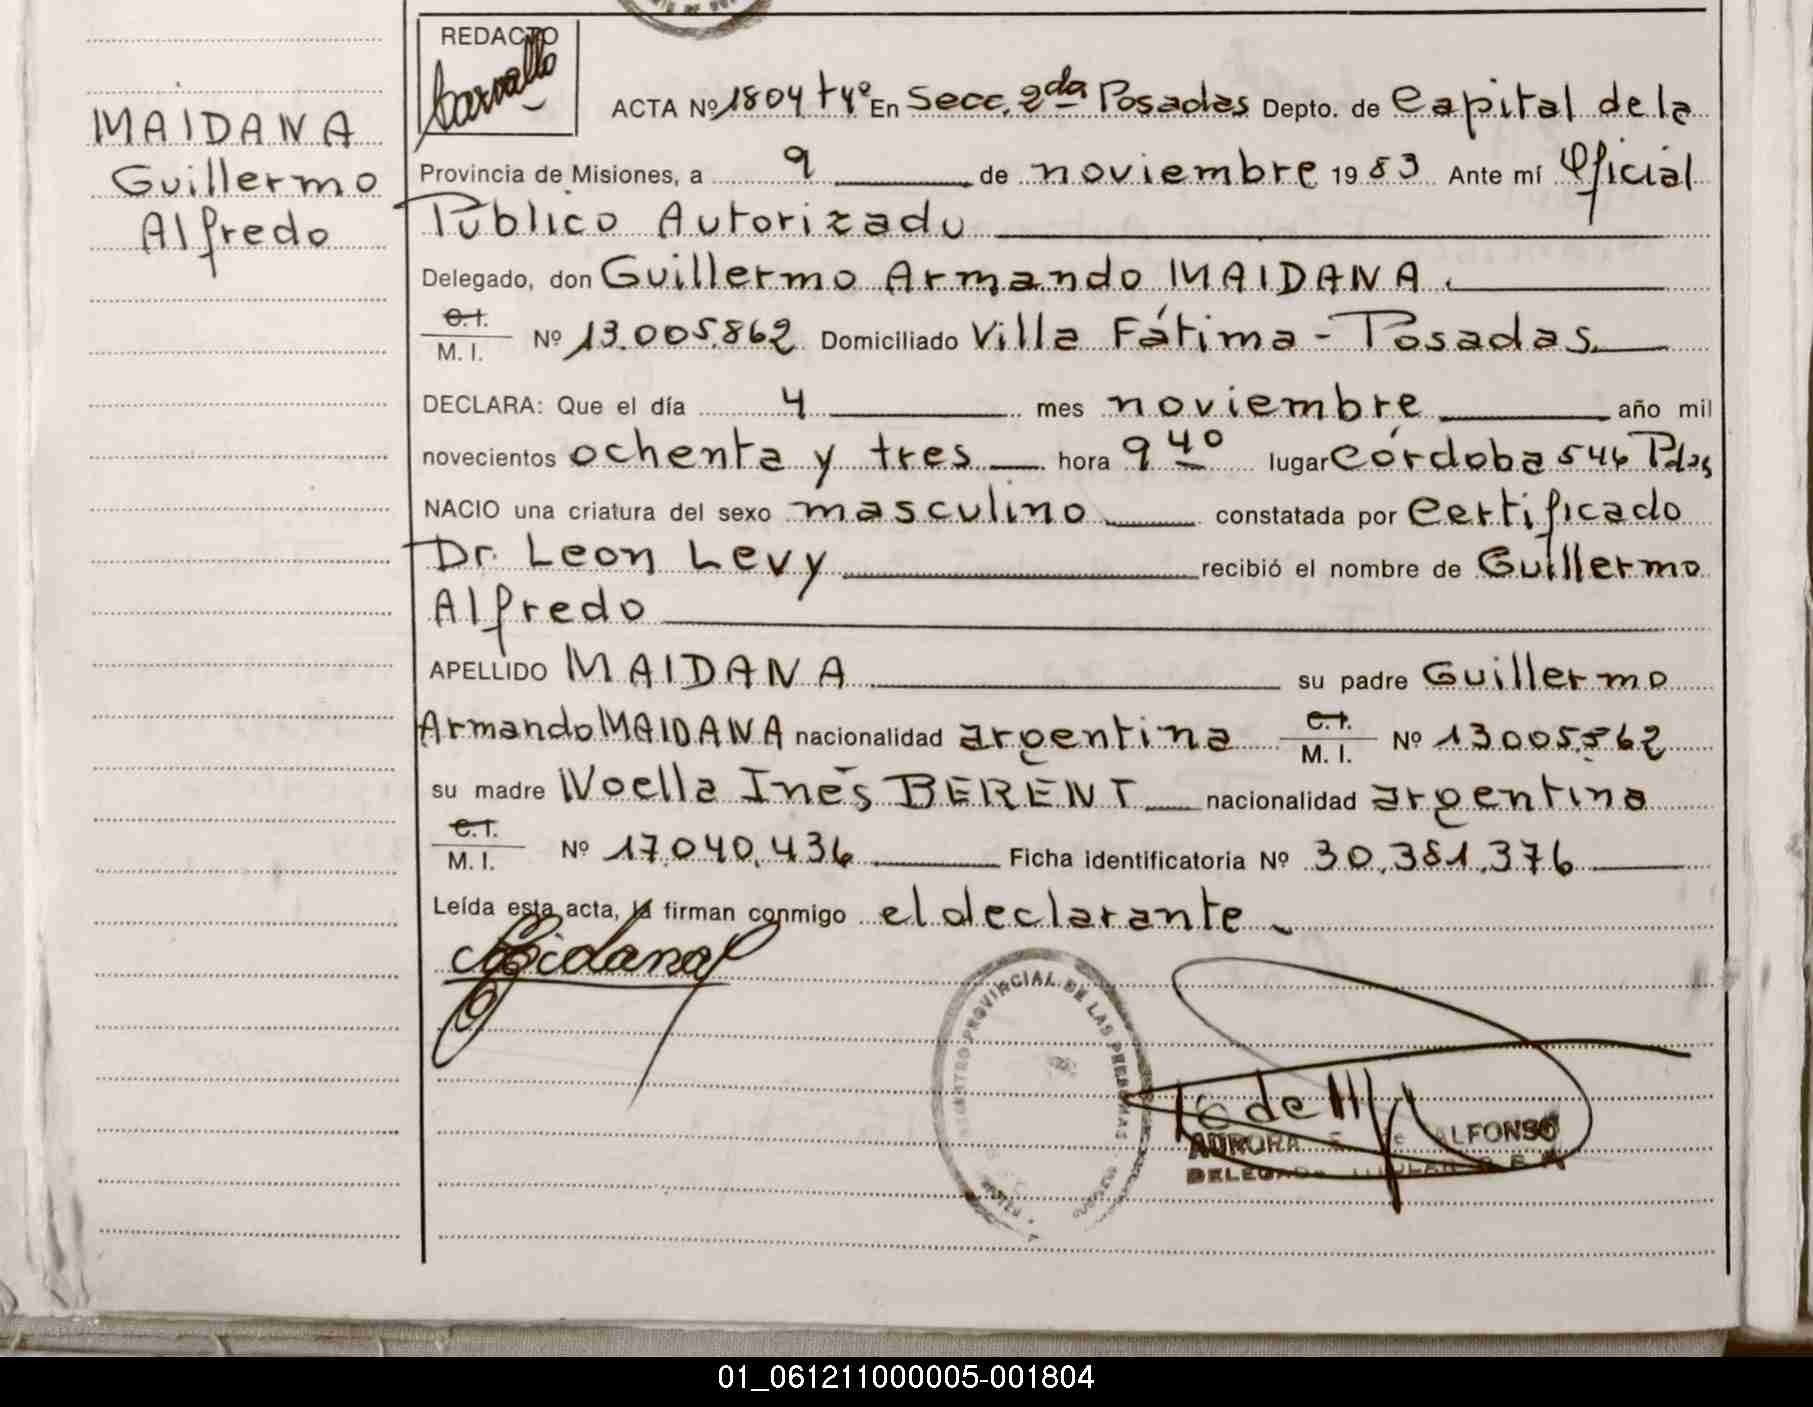 REDACTO
Carvallo
MAIDANA
Guillermo
Alfredo
ACTA Nº 1804 tº 4º En Secc. 2da Posadas Depto. de Capital de la
Provincia de Misiones, a 9 de noviembre 1983 Ante mí Oficial
Público Autorizado
Delegado, don Guillermo Armando MAIDANA.
C.I.
M. I. Nº 13.005.862 Domiciliado Villa Fátima - Posadas
DECLARA: Que el día 4 mes noviembre año mil
novecientos ochenta y tres hora 9 40 lugar Córdoba 546 Pdas
NACIO una criatura del sexo masculino constatada por Certificado
Dr. Leon Levy recibió el nombre de Guillermo
Alfredo
APELLIDO MAIDANA su padre Guillermo
Armando MAIDANA nacionalidad argentina C.I.
M. I. Nº 13.005.562
su madre Noella Inés BERENT nacionalidad argentina
C.I.
M. I. Nº 17.040.436 Ficha identificatoria Nº 30.381.376
Leída esta acta, la firman conmigo el declarante
Maidana
REGISTRO PROVINCIAL DE LAS PERSONAS
AURORA de ALFONSO
DELEGADO TITULAR
01_061211000005-001804